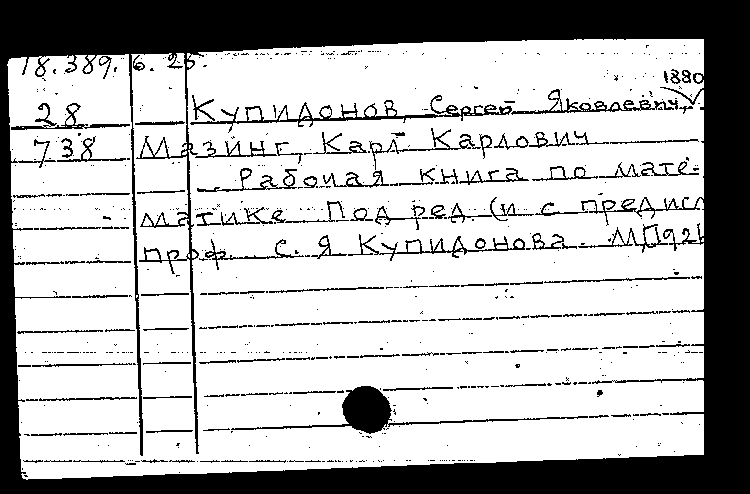 18.389.6.25.
1890
28 Купидонов, Сергей Яковлевич,
738 Мазинг, Карл Карлович
Рабочая книга по мате-
матике Под ред (и с предисл
проф. С. Я Купидонова.